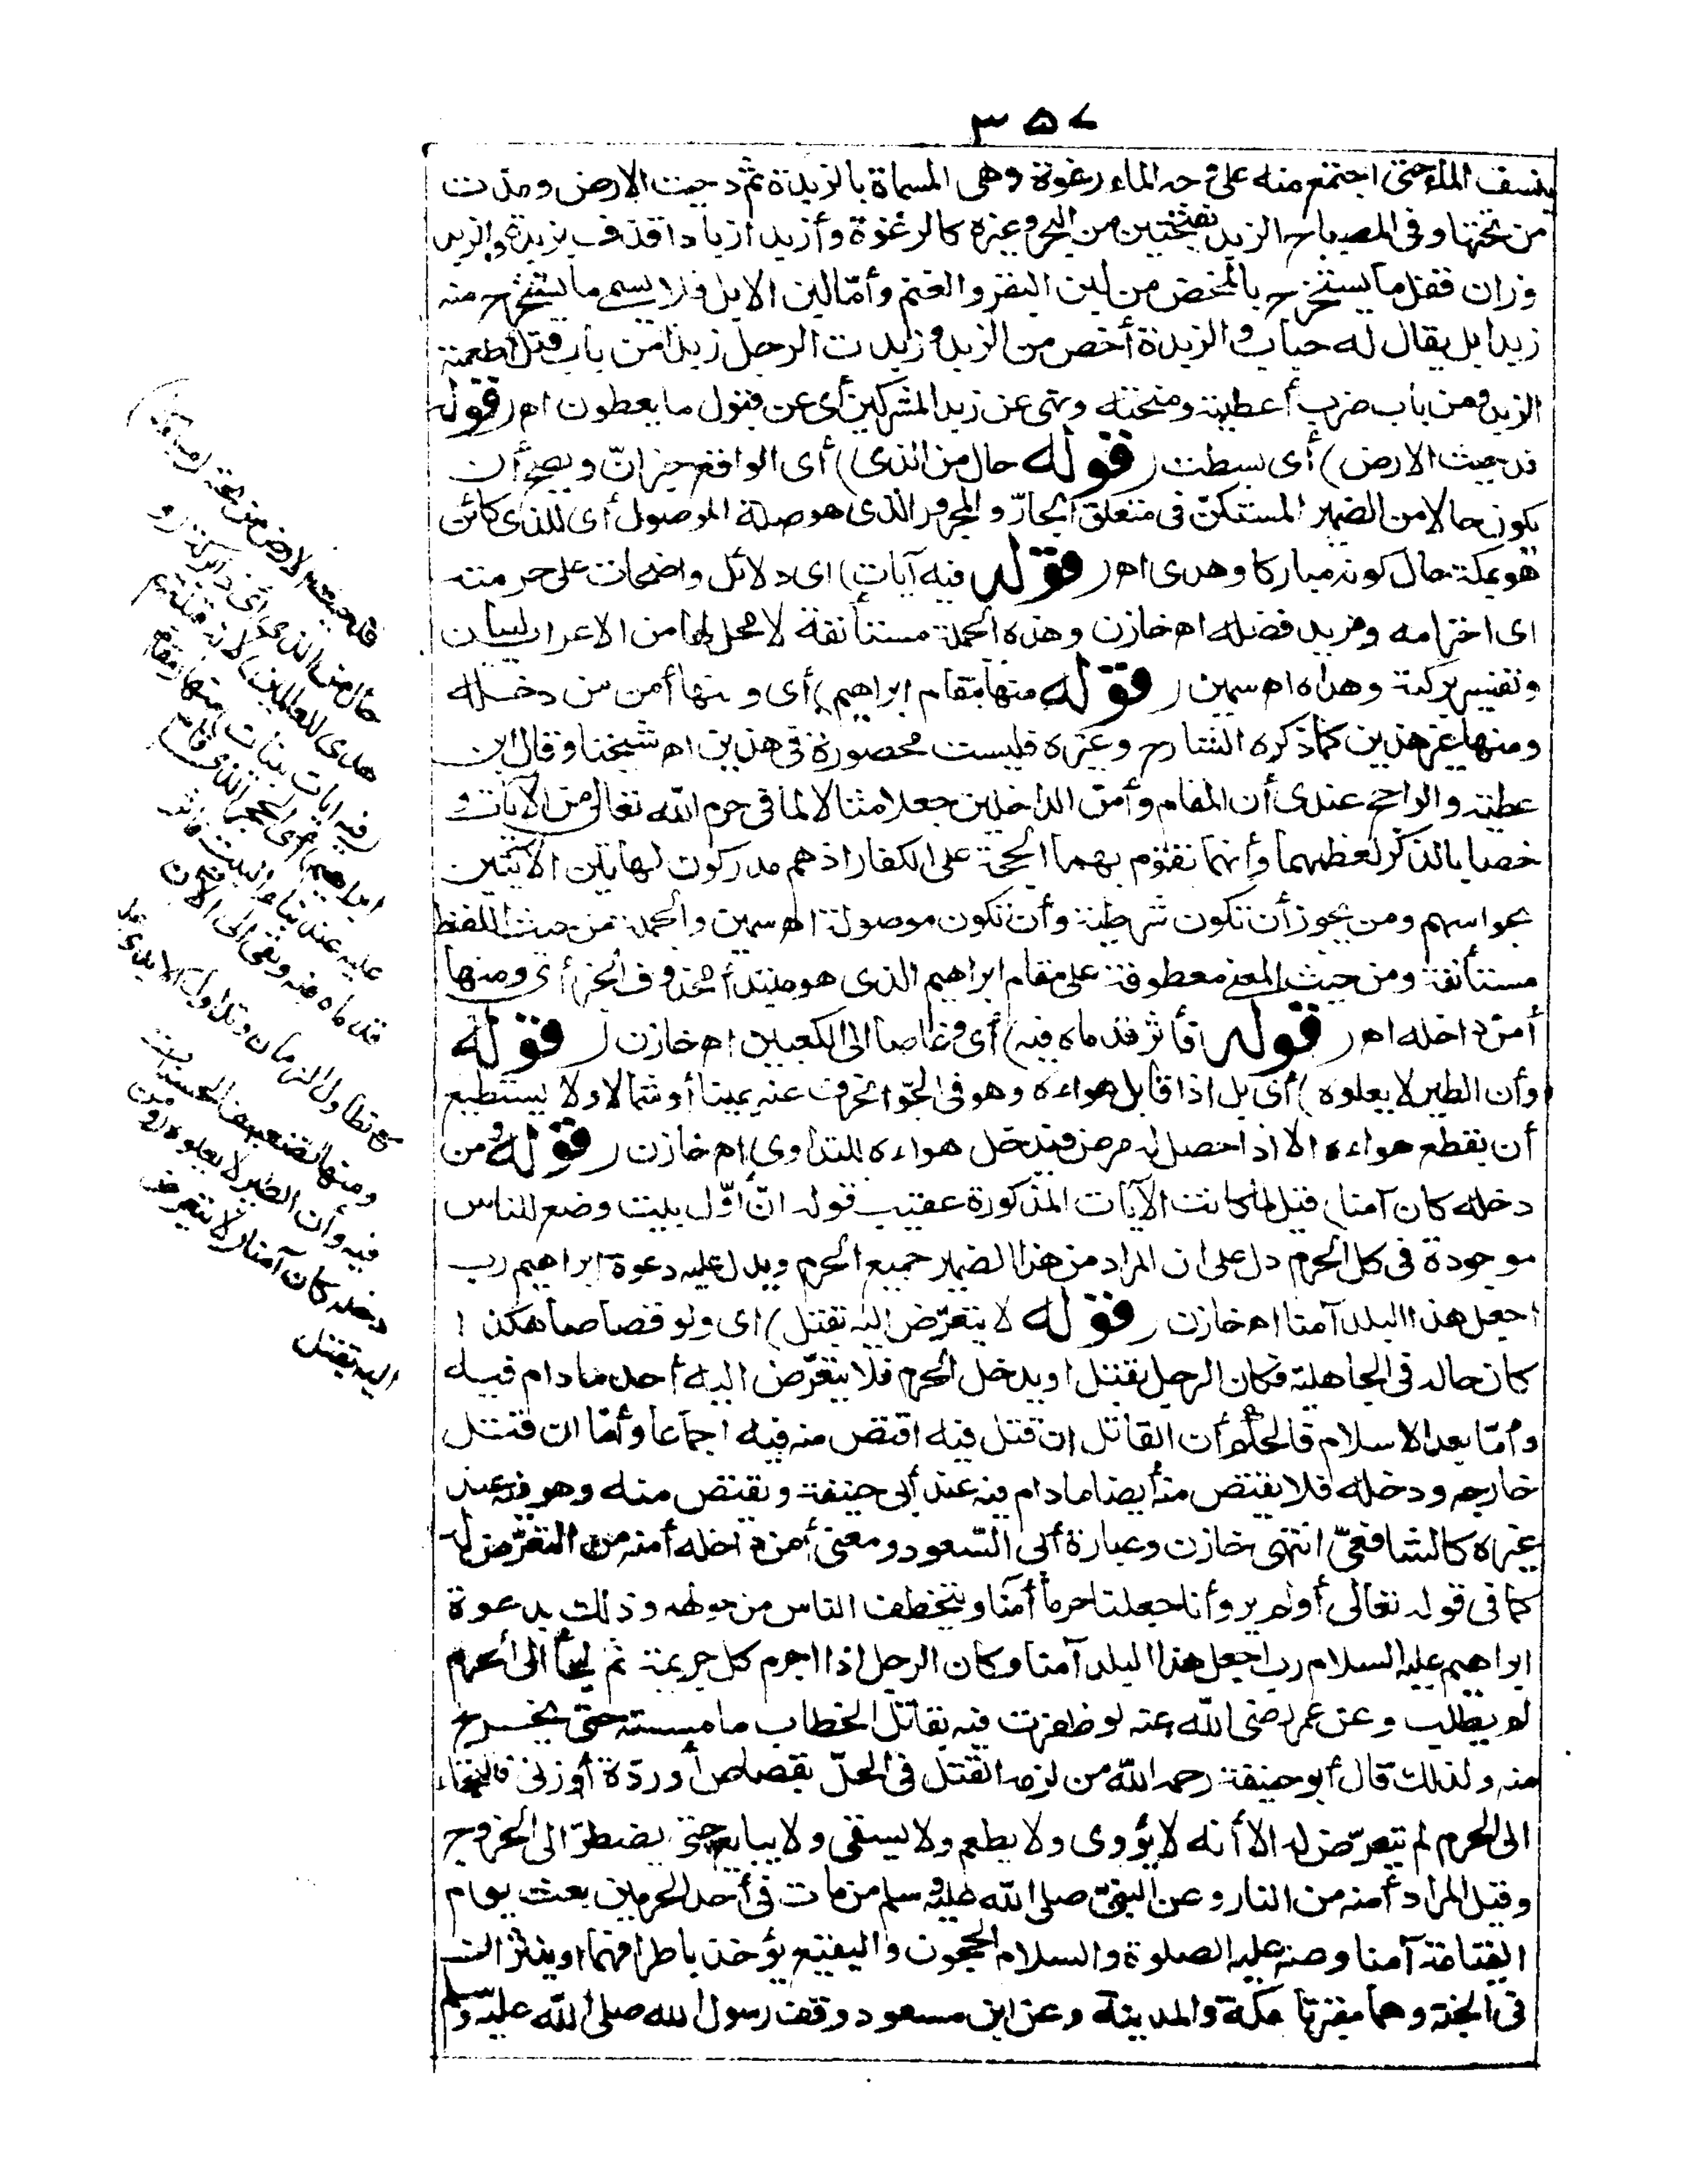 ٣٥٧
ينسف الماء حتى اجتمع منه على وجه الماء رغوة وهى المسماة بالزبدة ثم دحيت الارض ومدّت
من تحتها وفى المصباح الزبد بفتحتين من البحر وغيره كالرغوة وأزبد ازبادا قذف بزبده والزبد
وزان قفل ما يستخرج بالمخض من لبن البقر والغنم وأمّا لبن الابل فلا يسمى ما يستخرج منه
زبدا بل يقال له حباب والزبدة أخص من الزبد وزبدت الرجل زبدا من باب قتل أطعمته
الزبد ومن باب ضرب أعطيته ومنحته ونهى عن زبد المشركين أى عن قبول ما يعطون اهـ (قوله
فدحيت الارض) أى بسطت (قوله حال من الذى) أى الواقع خبر انّ ويصح أن
يكون حالا من الضمير المستكنّ فى متعلق الجارّ والمجرور الذى هو صلة الموصول أى للذى كائن
هو بمكة حال كونه مباركا وهدى اهـ (قوله فيه آيات) اى دلائل واضحات على حرمته
اى احترامه ومزيد فضله اهـ خازن وهذه الجملة مستأنفة لا محل لها من الاعراب لبيان
وتفسير بركته وهداه اهـ سمين (قوله منها مقام ابراهيم) أى ومنها أمن من دخله
ومنها غير هذين كما ذكره الشارح وغيره فليست محصورة فى هذين اهـ شيخنا وقال ابن
عطية والراجح عندى أن المقام وأمن الداخلين جعلا مثالا لما فى حرم الله تعالى من الآيات و
خصا بالذكر لعظمهما وأنهما تقوم بهما الحجة على الكفار اذهم مدركون لهاتين الآيتين
بحواسهم ومن يجوز أن تكون شرطية وأن تكون موصولة اهـ سمين والجملة من حيث اللفظ
مستأنفة ومن حيث المعنى معطوفة على مقام ابراهيم الذى هو مبتدأ محذوف الخبر أى ومنها
أمن داخله اهـ (قوله فأثر قدماه فيه) أى وغاصا الى الكعبين اهـ خازن (قوله
وأن الطير لا يعلوه) أى بل اذا قابل هواءه وهو فى الجوّ انحرف عنه يمينا أو شمالا ولا يستطيع
أن يقطع هواءه الا اذا حصل له مرض فيدخل هواءه للتداوى اهـ خازن (قوله ومن
دخله كان آمنا) قيل لما كانت الآيات المذكورة عقيب قوله انّ أوّل بيت وضع للناس
موجودة فى كل الحرم دل على ان المراد من هذا الضمير جميع الحرم ويدل عليه دعوة ابراهيم رب
اجعل هذا البلد آمنا اهـ خازن (قوله لا يتعرّض اليه بقتل) اى ولو قصاصا هكذا
كان حاله فى الجاهلية فكان الرجل يقتل ويدخل الحرم فلا يتعرّض اليه أحد ما دام فيه
وأمّا بعد الاسلام فالحكم أن القاتل ان قتل فيه اقتص منه فيه اجماعا وأمّا ان قتل
خارجه ودخله فلا يقتص منه أيضا ما دام فيه عند أبى حنيفة ويقتص منه وهو فيه عند
غيره كالشافعىّ انتهى خازن وعبارة أبى السّعود ومعنى أمن داخله أمنه من التعرّض له
كما فى قوله تعالى أولم يروا أنا جعلنا حرما آمنا ويتخطف الناس من حولهم وذلك بدعوة
ابراهيم عليه السلام رب اجعل هذا البلد آمنا وكان الرجل اذا اجرم كل جريمة ثم لجأ الى الحرم
لم يطلب وعن عمر رضى الله عنه لو ظفرت فيه بقاتل الخطاب ما مسسته حتى يخرج
منه ولذلك قال أبو حنيفة رحمه الله من لزمه القتل فى الحلّ بقصاص أو ردّة أو زنى فالتجاء
الى الحرم لم يتعرّض له الا أنه لا يؤوى ولا يطعم ولا يسقى ولا يبايع حتى يضطرّ الى الخروج
وقيل المراد أمنه من النار وعن النبىّ صلى الله عليه وسلم من مات فى أحد الحرمين بعث يوم
القيامة آمنا وعنه عليه الصلوة والسلام الحجون والبقيع يؤخذ باطرافهما وينثران
فى الجنة وهما مقبرتا مكة والمدينة وعن ابن مسعود وقف رسول الله صلى الله عليه وسلم
فدحيت الارض من تحته
حال من الذى أى ذا بركة (و
هدى للعالمين) لانه قبلتهم
(فيه آيات بينات) منها (مقام
ابراهيم) أى الحجر الذى قام
عليه عند بناء البيت فأثر
قدماه فيه وبقى الى الآن
مع تطاول الزمان وتداول الايدى عليه
ومنها تضعيف الحسنات
فيه وأن الطير لا يعلوه (ومن
دخله كان آمنا) لا يتعرض
اليه بقتل